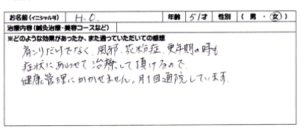 お名前(イニシャル可) H.O 年齢 51才 性別 (男・女)
治療内容(鍼灸治療・美容コースなど)
※どのような効果があったか、また通っていただいての感想
肩こりだけでなく、風邪、花粉症、更年期の時も
症状にあわせて治療して頂けるので
健康管理にかかせません。月1回通院しています。